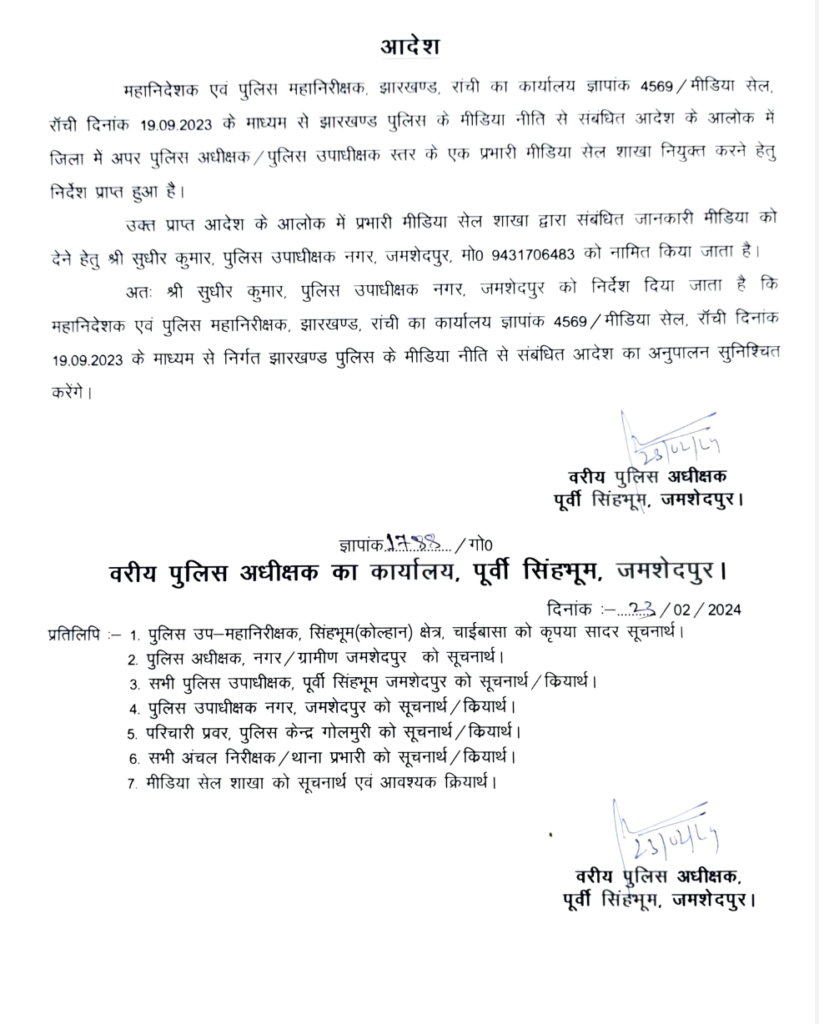 आदेश
महानिदेशक एवं पुलिस महानिरीक्षक, झारखण्ड, रांची का कार्यालय ज्ञापांक 4569/मीडिया सेल,
रॉची दिनांक 19.09.2023 के माध्यम से झारखण्ड पुलिस के मीडिया नीति से संबंधित आदेश के आलोक में
जिला में अपर पुलिस अधीक्षक/पुलिस उपाधीक्षक स्तर के एक प्रभारी मीडिया सेल शाखा नियुक्त करने हेतु
निर्देश प्राप्त हुआ है।
उक्त प्राप्त आदेश के आलोक में प्रभारी मीडिया सेल शाखा द्वारा संबंधित जानकारी मीडिया को
देने हेतु श्री सुधीर कुमार, पुलिस उपाधीक्षक नगर, जमशेदपुर, मो0 9431706483 को नामित किया जाता है।
अतः श्री सुधीर कुमार, पुलिस उपाधीक्षक नगर, जमशेदपुर को निर्देश दिया जाता है कि
महानिदेशक एवं पुलिस महानिरीक्षक, झारखण्ड, रांची का कार्यालय ज्ञापांक 4569/मीडिया सेल, रॉची दिनांक
19.09.2023 के माध्यम से निर्गत झारखण्ड पुलिस के मीडिया नीति से संबंधित आदेश का अनुपालन सुनिश्चित
करेंगे।
23/02/24
वरीय पुलिस अधीक्षक
पूर्वी सिंहभूम, जमशेदपुर।
ज्ञापांक 1788 /गो0
वरीय पुलिस अधीक्षक का कार्यालय, पूर्वी सिंहभूम, जमशेदपुर।
दिनांक :-...23/02/2024
प्रतिलिपि :- 1. पुलिस उप-महानिरीक्षक, सिंहभूम(कोल्हान) क्षेत्र, चाईबासा को कृपया सादर सूचनार्थ।
2. पुलिस अधीक्षक, नगर/ग्रामीण जमशेदपुर को सूचनार्थ।
3. सभी पुलिस उपाधीक्षक, पूर्वी सिंहभूम जमशेदपुर को सूचनार्थ/कियार्थ।
4. पुलिस उपाधीक्षक नगर, जमशेदपुर को सूचनार्थ/कियार्थ।
5. परिचारी प्रवर, पुलिस केन्द्र गोलमुरी को सूचनार्थ/कियार्थ।
6. सभी अंचल निरीक्षक/थाना प्रभारी को सूचनार्थ/कियार्थ।
7. मीडिया सेल शाखा को सूचनार्थ एवं आवश्यक क्रियार्थ।
23/02/24
वरीय पुलिस अधीक्षक,
पूर्वी सिंहभूम, जमशेदपुर।